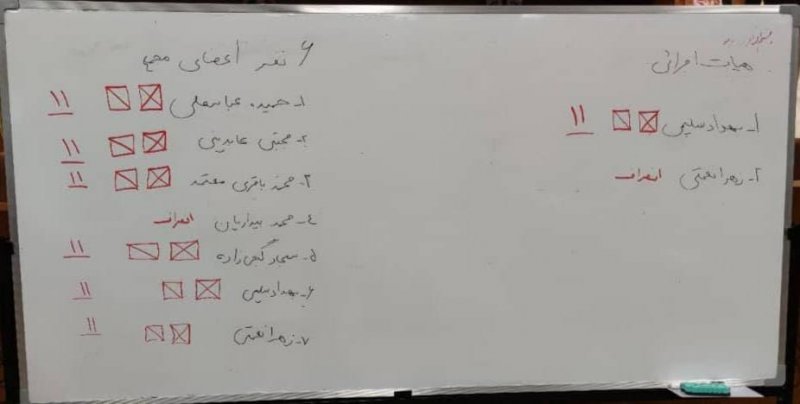 هیات اجرائی
۱- مهداد سلیمی ۱۱
۲- زهرا نعمتی انصراف
۶ نفر اعضای مجمع
۱- حمیده عباسعلی ۱۱
۲- مجتبی عابدینی ۱۱
۳- محمد باقری معتمد ۱۱
۴- محمد بیداریان انصراف
۵- سجاد گنج زاده ۱۱
۶- بهداد سلیمی ۱۱
۷- زهرا نعمتی ۱۱